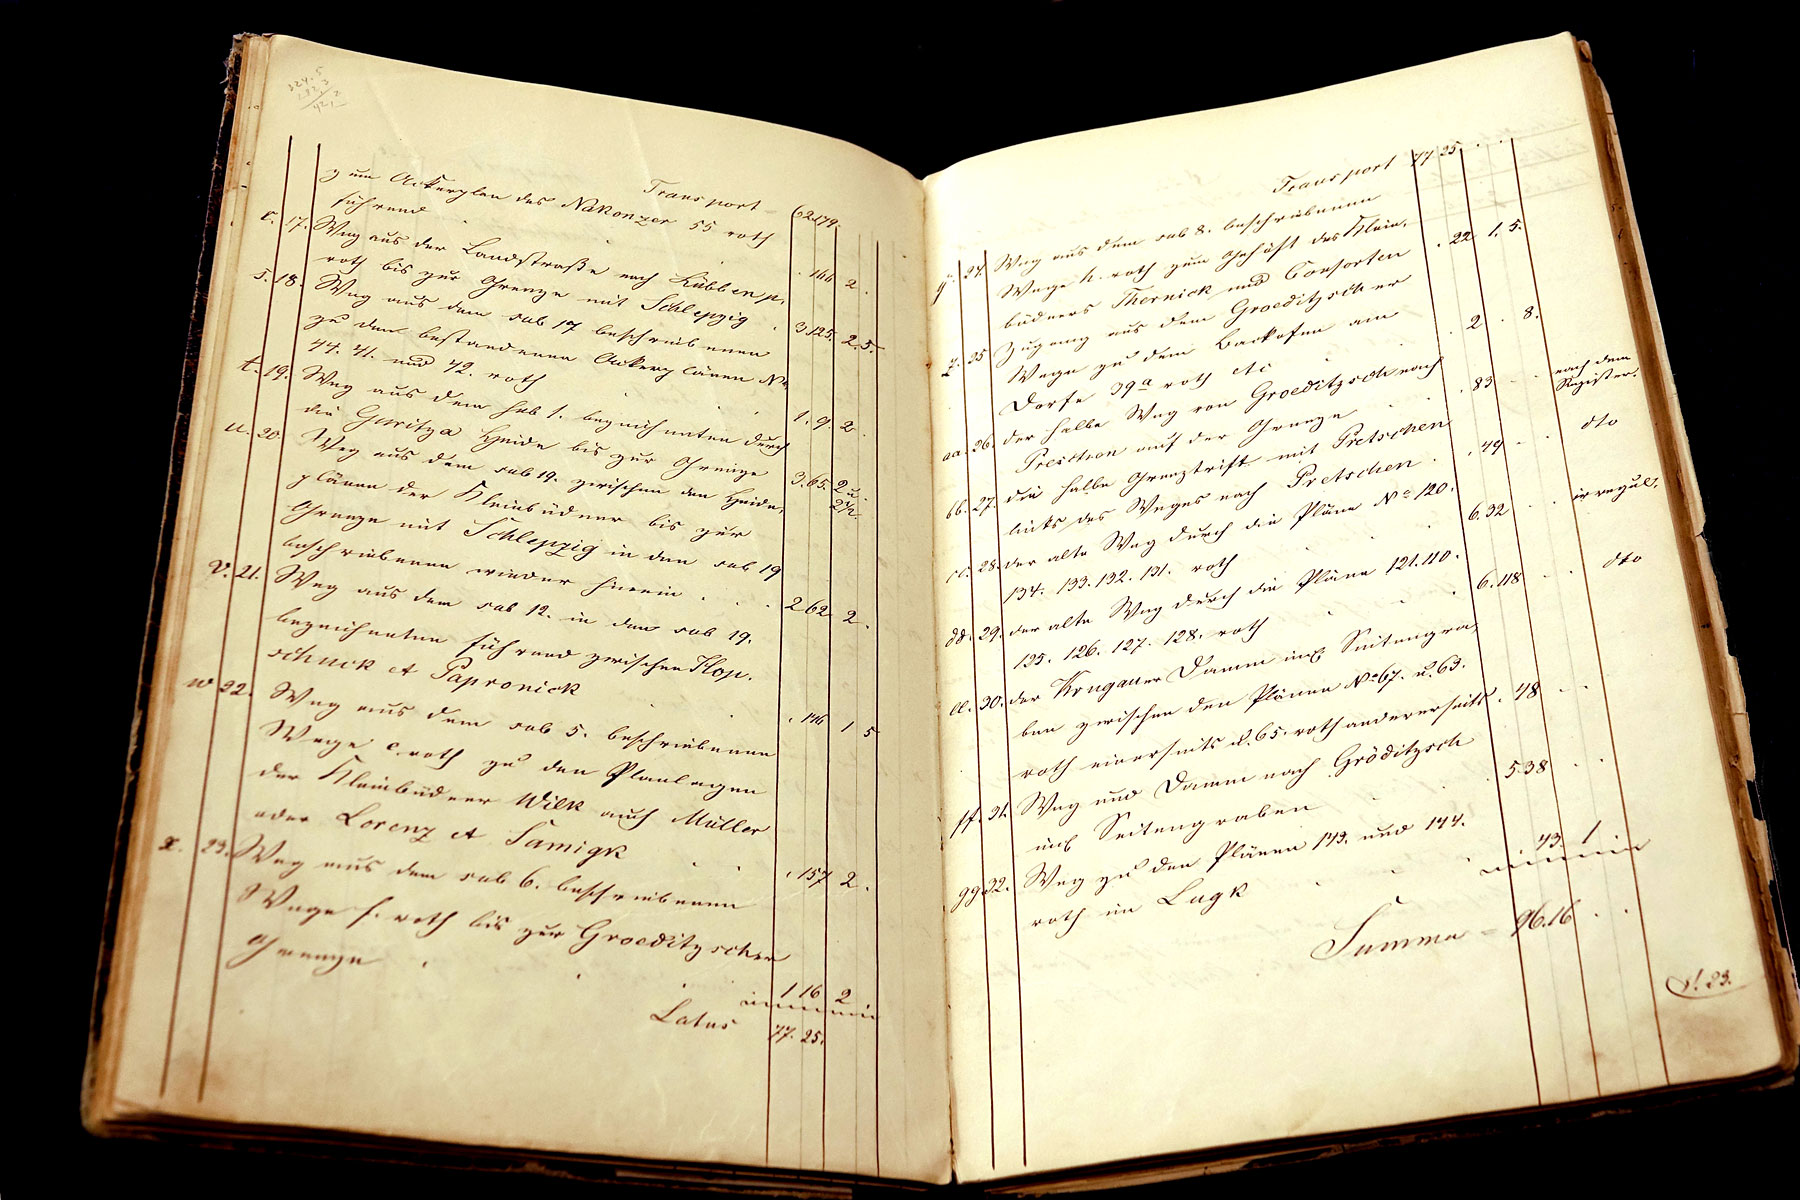 Transport 62.179.
zum Ackerplan des Nakonzer 55 roth
führend . 166 2.
r. 17. Weg aus der Landstraße nach Lübben p.
roth bis zur Grenze mit Schlepzig . 3.125. 2.5.
s. 18. Weg aus dem sub 17 beschriebenen
zu den bestandenen Ackerplänen No
44. 41. und 42. roth 1. 9. 2.
t. 19. Weg aus dem sub 1. bezeichneten durch
die Guritza Heide bis zur Grenze 3.65. 2 u. 2½.
u. 20. Weg aus dem sub 19. zwischen den Heide,
plänen der Kleinbüdner bis zur
Grenze mit Schlepzig in den sub 19
beschriebenen wieder hinein . . . 2 62 2.
v. 21. Weg aus dem sub 12. in den sub 19.
bezeichneten führend zwischen Klop,
schuck et Papronick . 146 1 5
w 22. Weg aus dem sub 5. beschriebenen
Wege c. roth zu den Planlagen
der Kleinbüdner Wilk auch Müller
oder Lorenz et Samigk . 157 2.
x. 23. Weg aus dem sub 6. beschriebenen
Wege f. roth bis zur Groeditzscher
Grenze . 1 16 2
Latus 77. 25.
Transport 77 25. . .
y. 24. Weg aus dem sub 8. beschriebenen
Wege h. roth zum Gehöft des Klein,
büdners Thernick und Consorten . 22 1. 5.
z. 25 Zugang aus dem Groeditzscher
Wege zu dem Backofen am
Dorfe 39a roth etc . 2 . 8.
aa. 26. der halbe Weg von Groeditzsch nach
Presctron auf der Grenze . 83 . . nach dem Register.
bb. 27. die halbe Grenztrift mit Pretschen
links des Weges nach Pretschen . . 49 . . dto
cc. 28. der alte Weg durch die Pläne No 120.
134. 133. 132. 131. roth 6. 32 . . irregul.
dd. 29. der alte Weg durch die Pläne 121. 110.
125. 126. 127. 128. roth 6. 118 . . dto
ee. 30. der Krugauer Damm incl Seitengra,
ben zwischen den Plänen No 67. u. 63.
roth einerseits u. 65. roth andererseits . 48 . .
ff. 31. Weg und Damm nach Gröditzsch
incl Seitengraben . . 5 38 . .
gg. 32. Weg zu den Plänen 143. und 144.
roth im Lugk . . . 43. 1
Summa = 96.16 . .